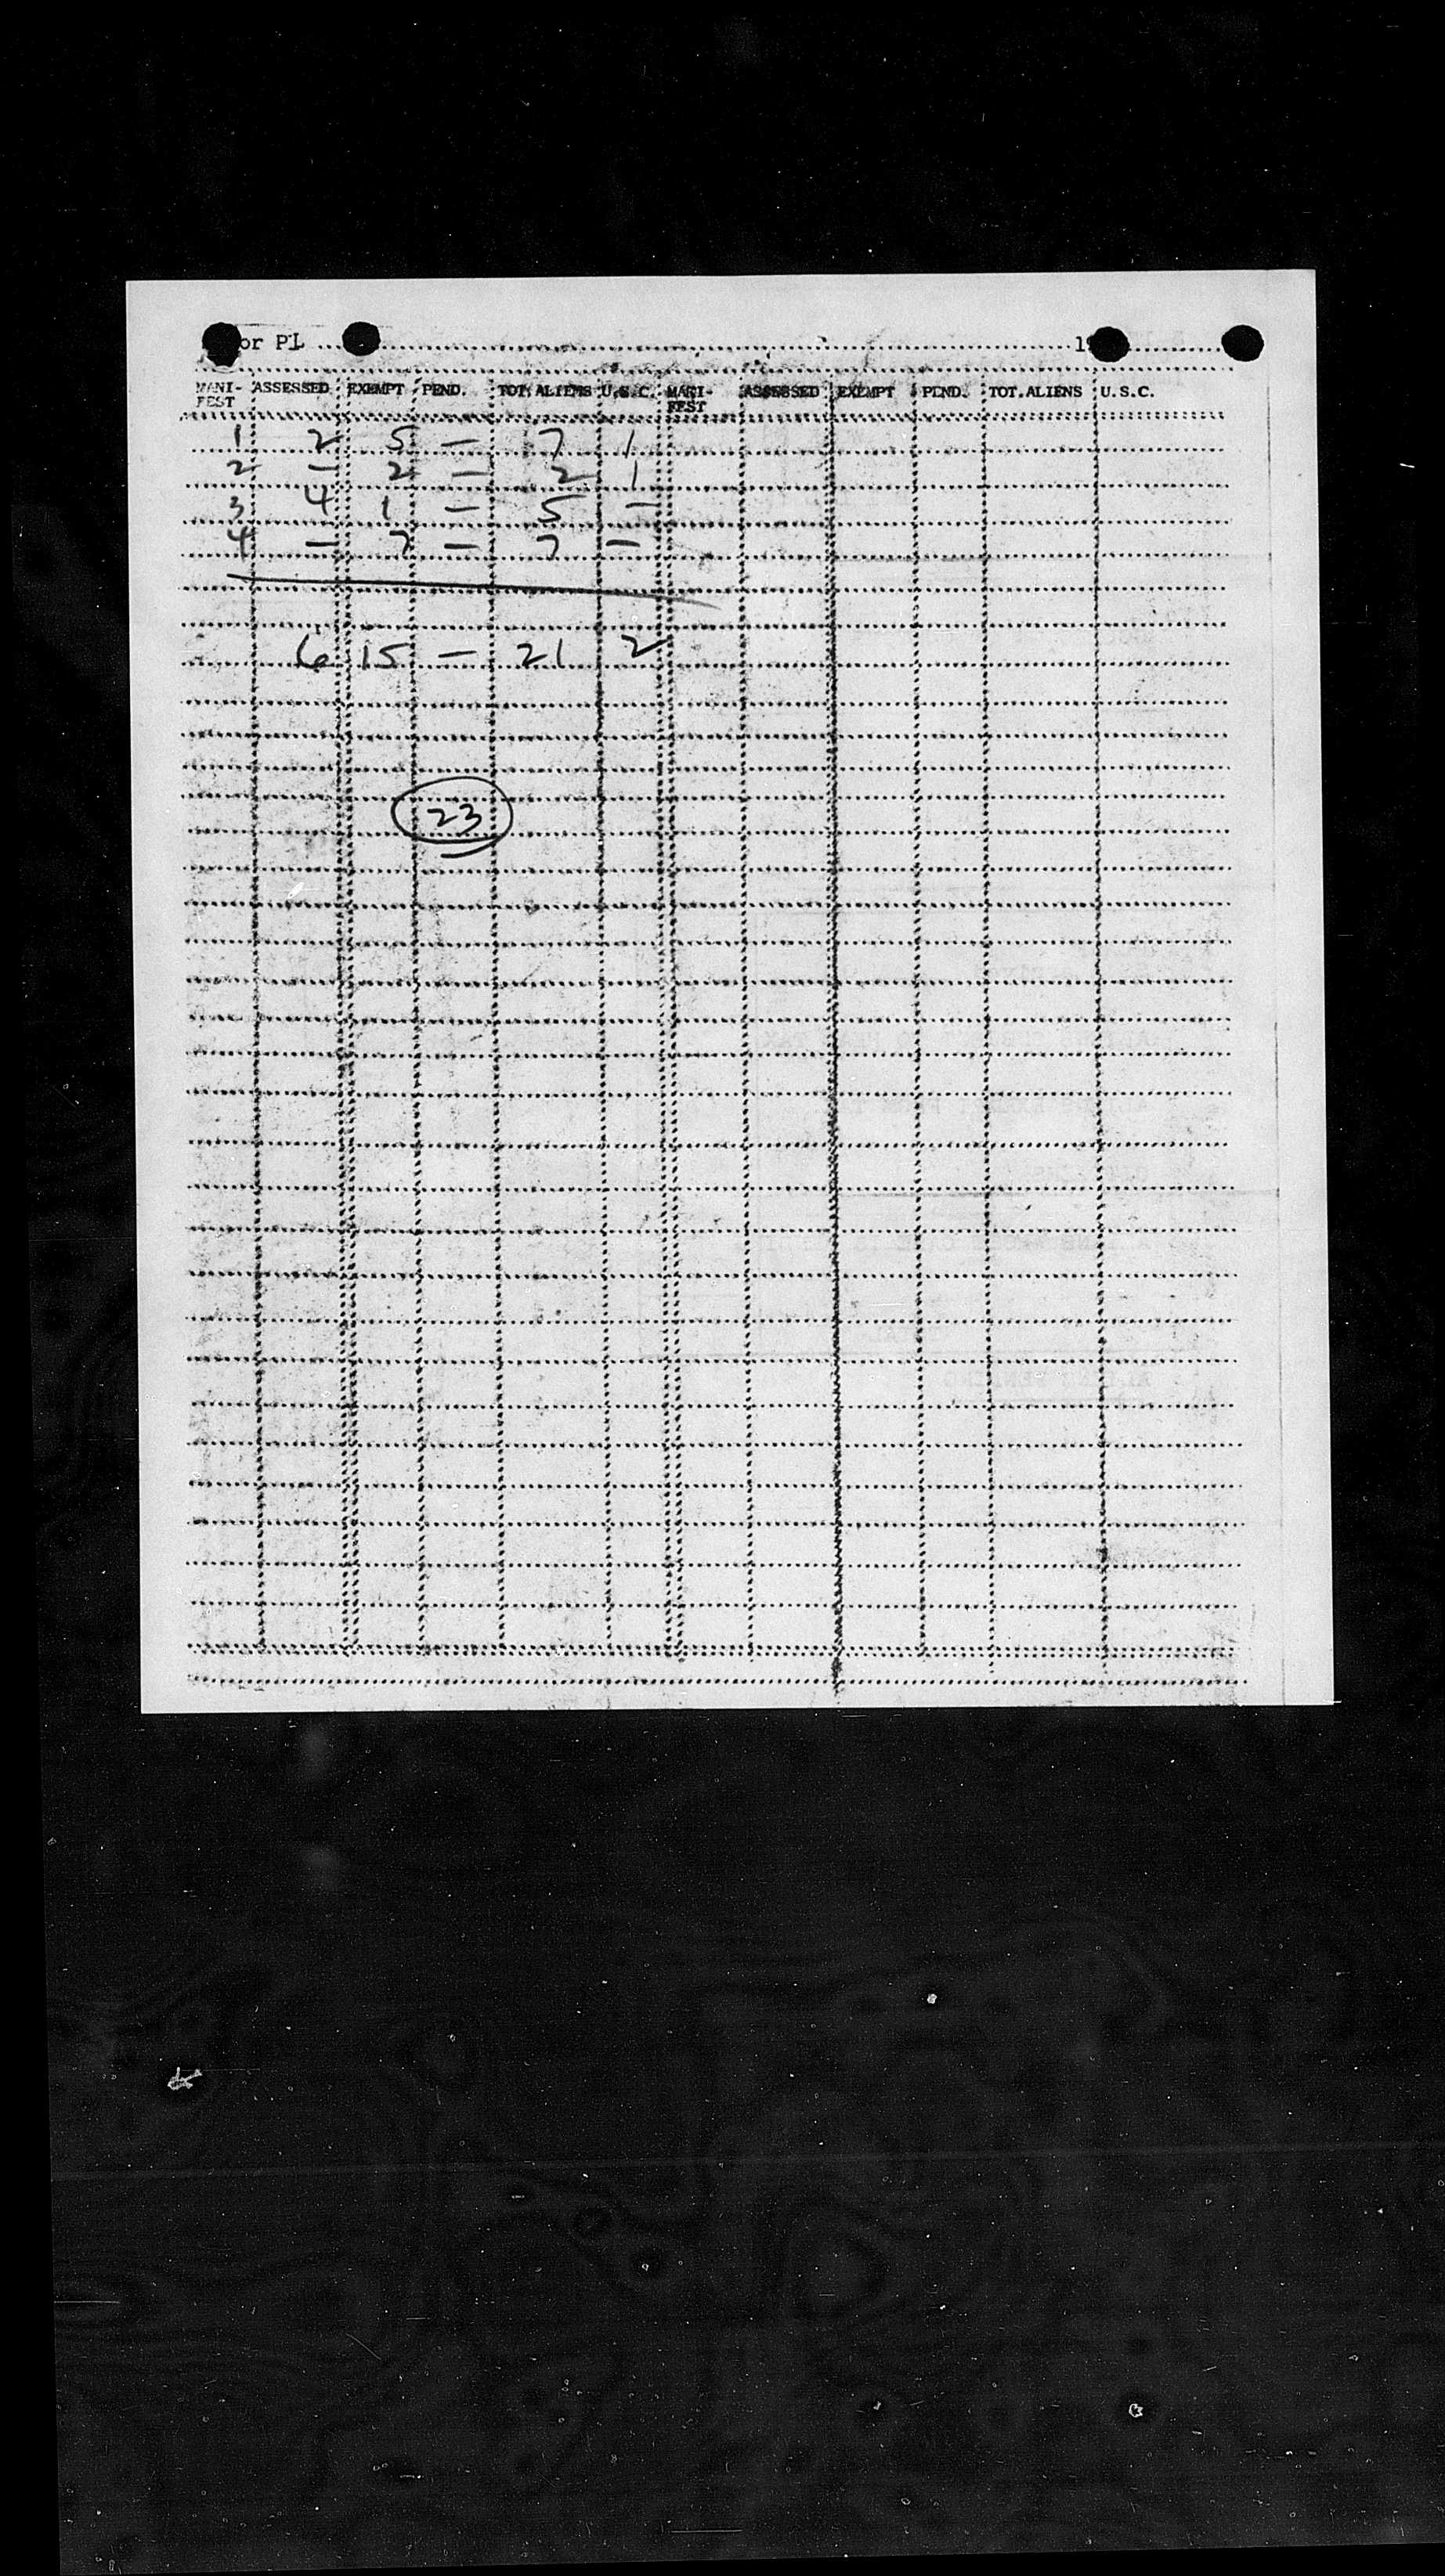 or PL 19
MANI- ASSESSED EXEMPT PEND. TOT. ALIENS U.S.C. MANI- ASSESSED EXEMPT PEND. TOT.ALIENS U.S.C.
FEST FEST
1 2 5 — 7 1
2 — 2 — 2 1
3 4 1 — 5 —
4 — 7 — 7 —
6 15 — 21 2
23